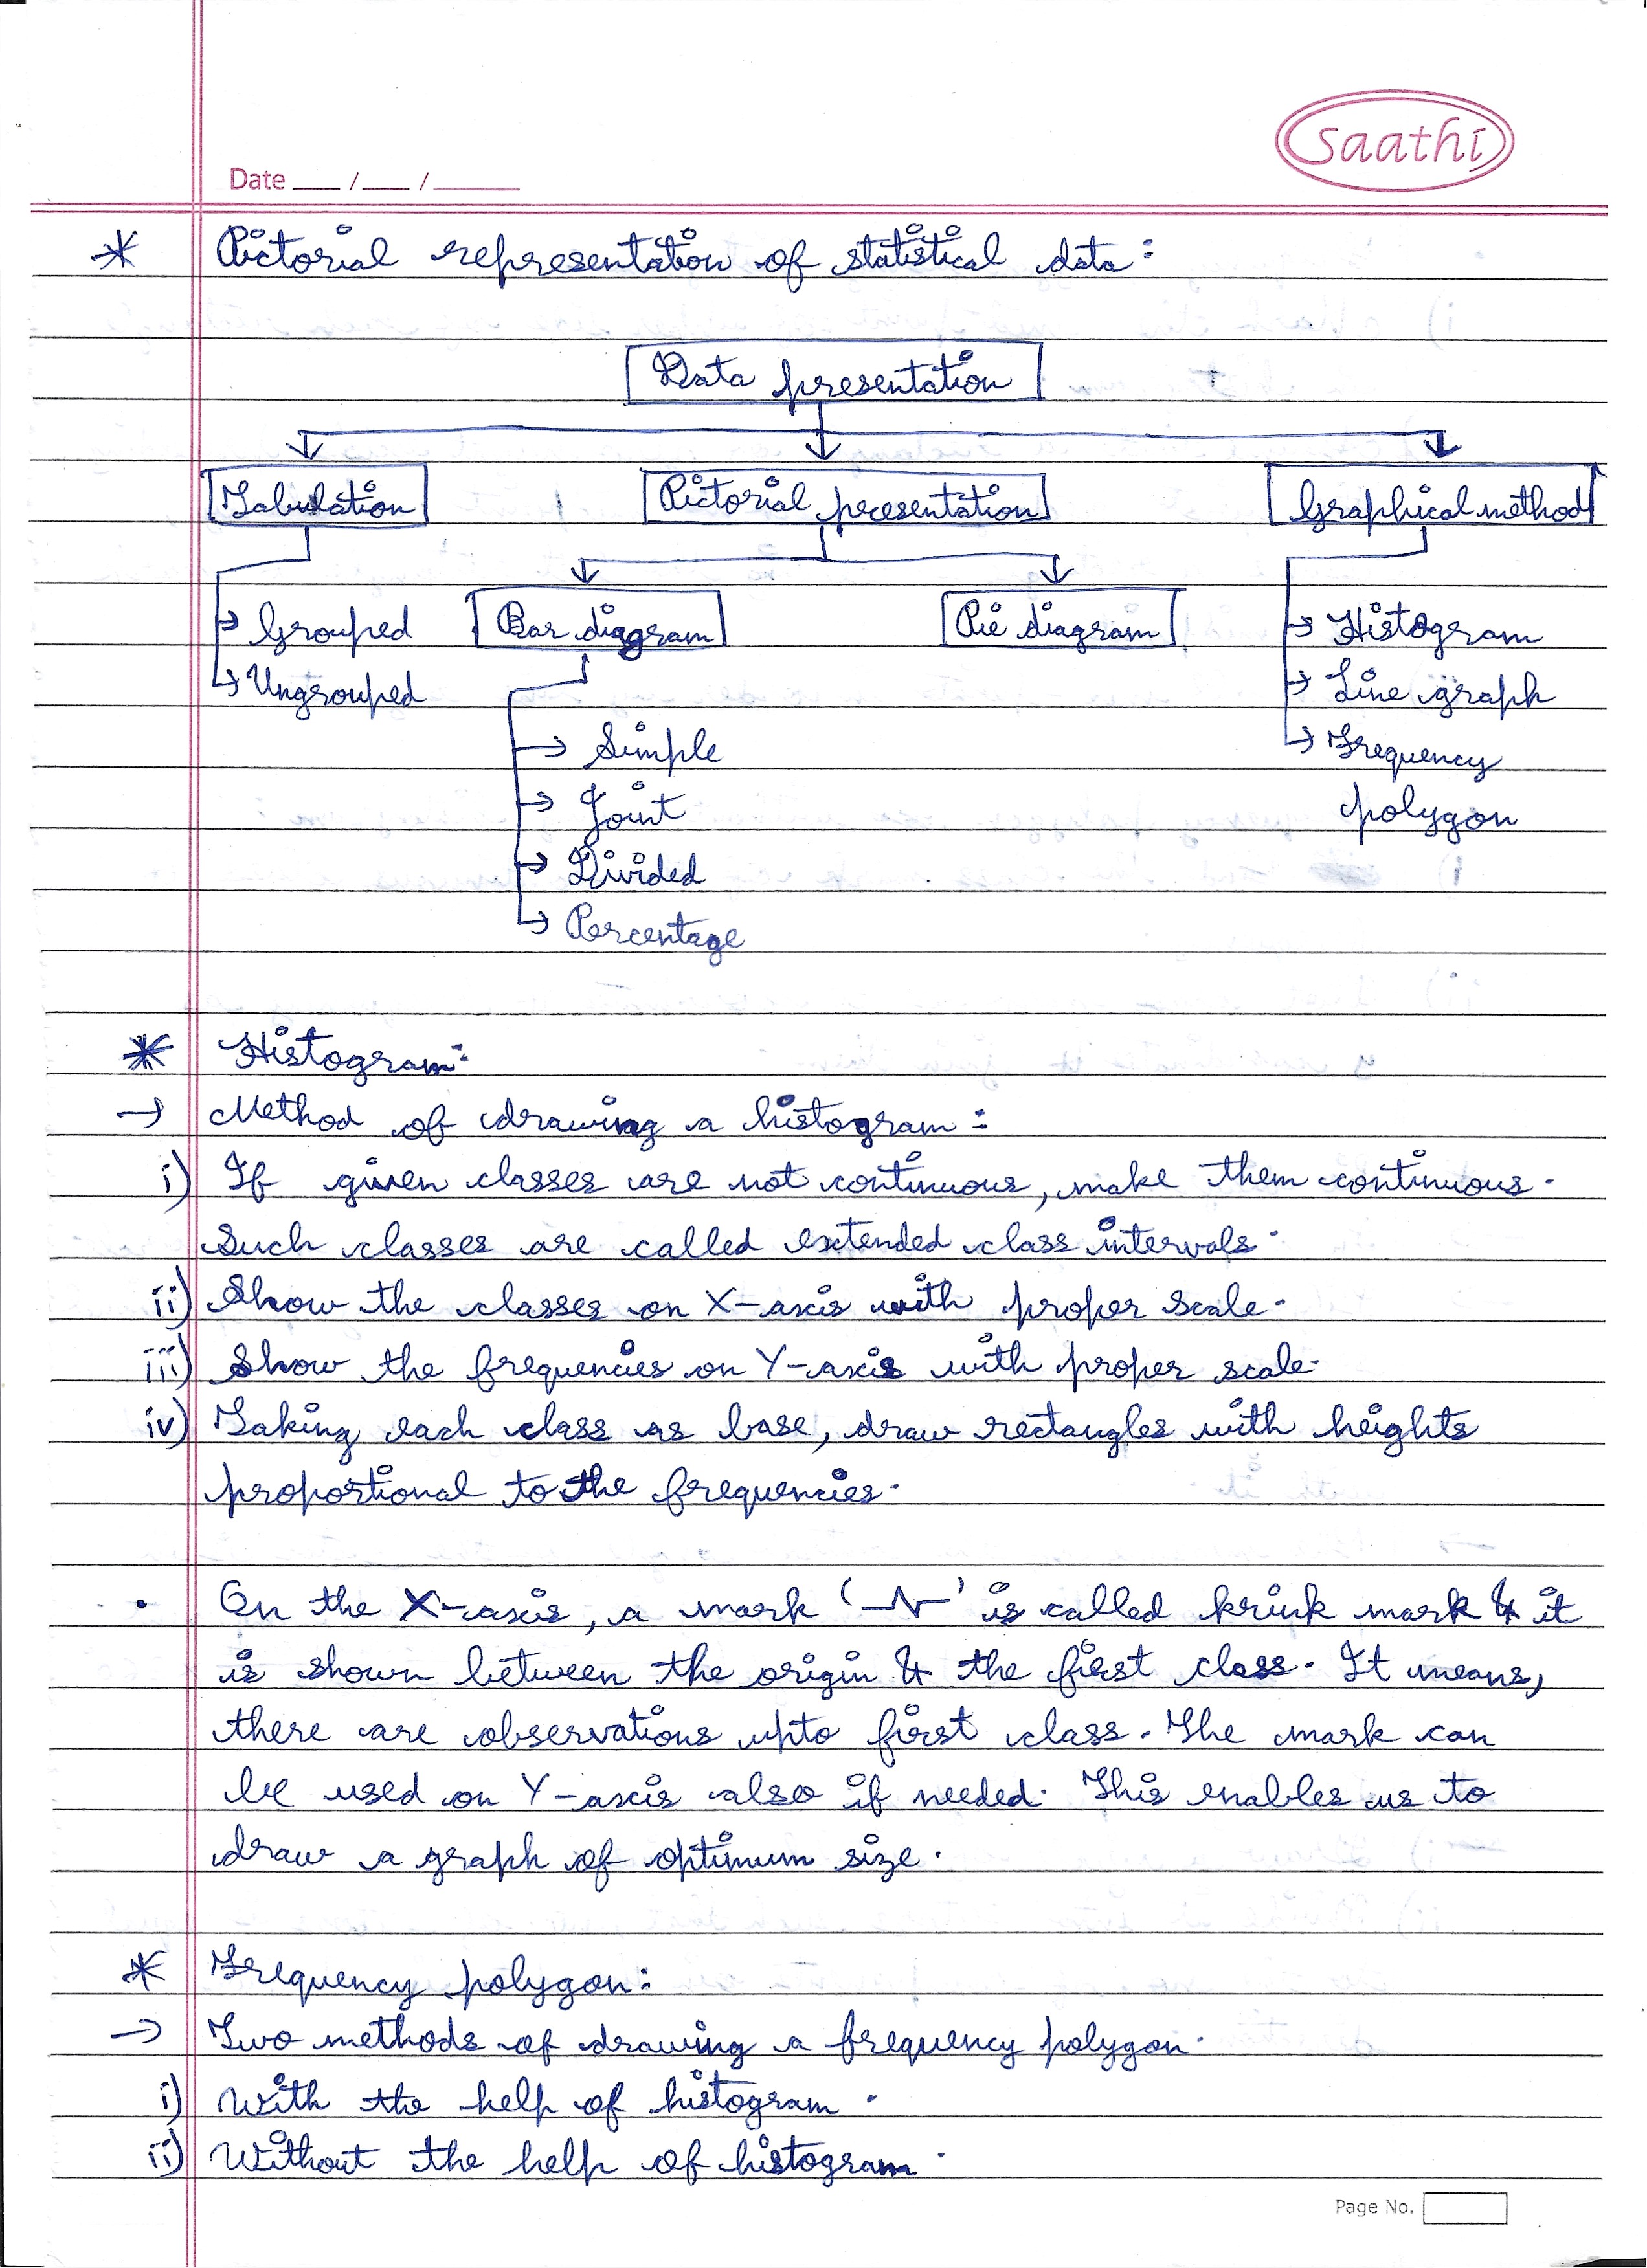 saathi
Date ___ / ___ / ______
* Pictorial representation of statistical data:
Data presentation
Tabulation Pictorial presentation Graphical method
→ Grouped Bar diagram Pie diagram → Histogram
→ Ungrouped → Line graph
→ Simple → Frequency
→ Joint polygon
→ Divided
→ Percentage
* Histogram:
→ Method of drawing a histogram:
i) If given classes are not continuous, make them continuous.
Such classes are called extended class intervals.
ii) Show the classes on X-axis with proper scale.
iii) Show the frequencies on Y-axis with proper scale.
iv) Taking each class as base, draw rectangles with heights
proportional to the frequencies.
• On the X-axis, a mark ' ' is called krink mark & it
is shown between the origin & the first class. It means,
there are observations upto first class. The mark can
be used on Y-axis also if needed. This enables us to
draw a graph of optimum size.
* Frequency polygon:
→ Two methods of drawing a frequency polygon.
i) With the help of histogram.
ii) Without the help of histogram.
Page No.